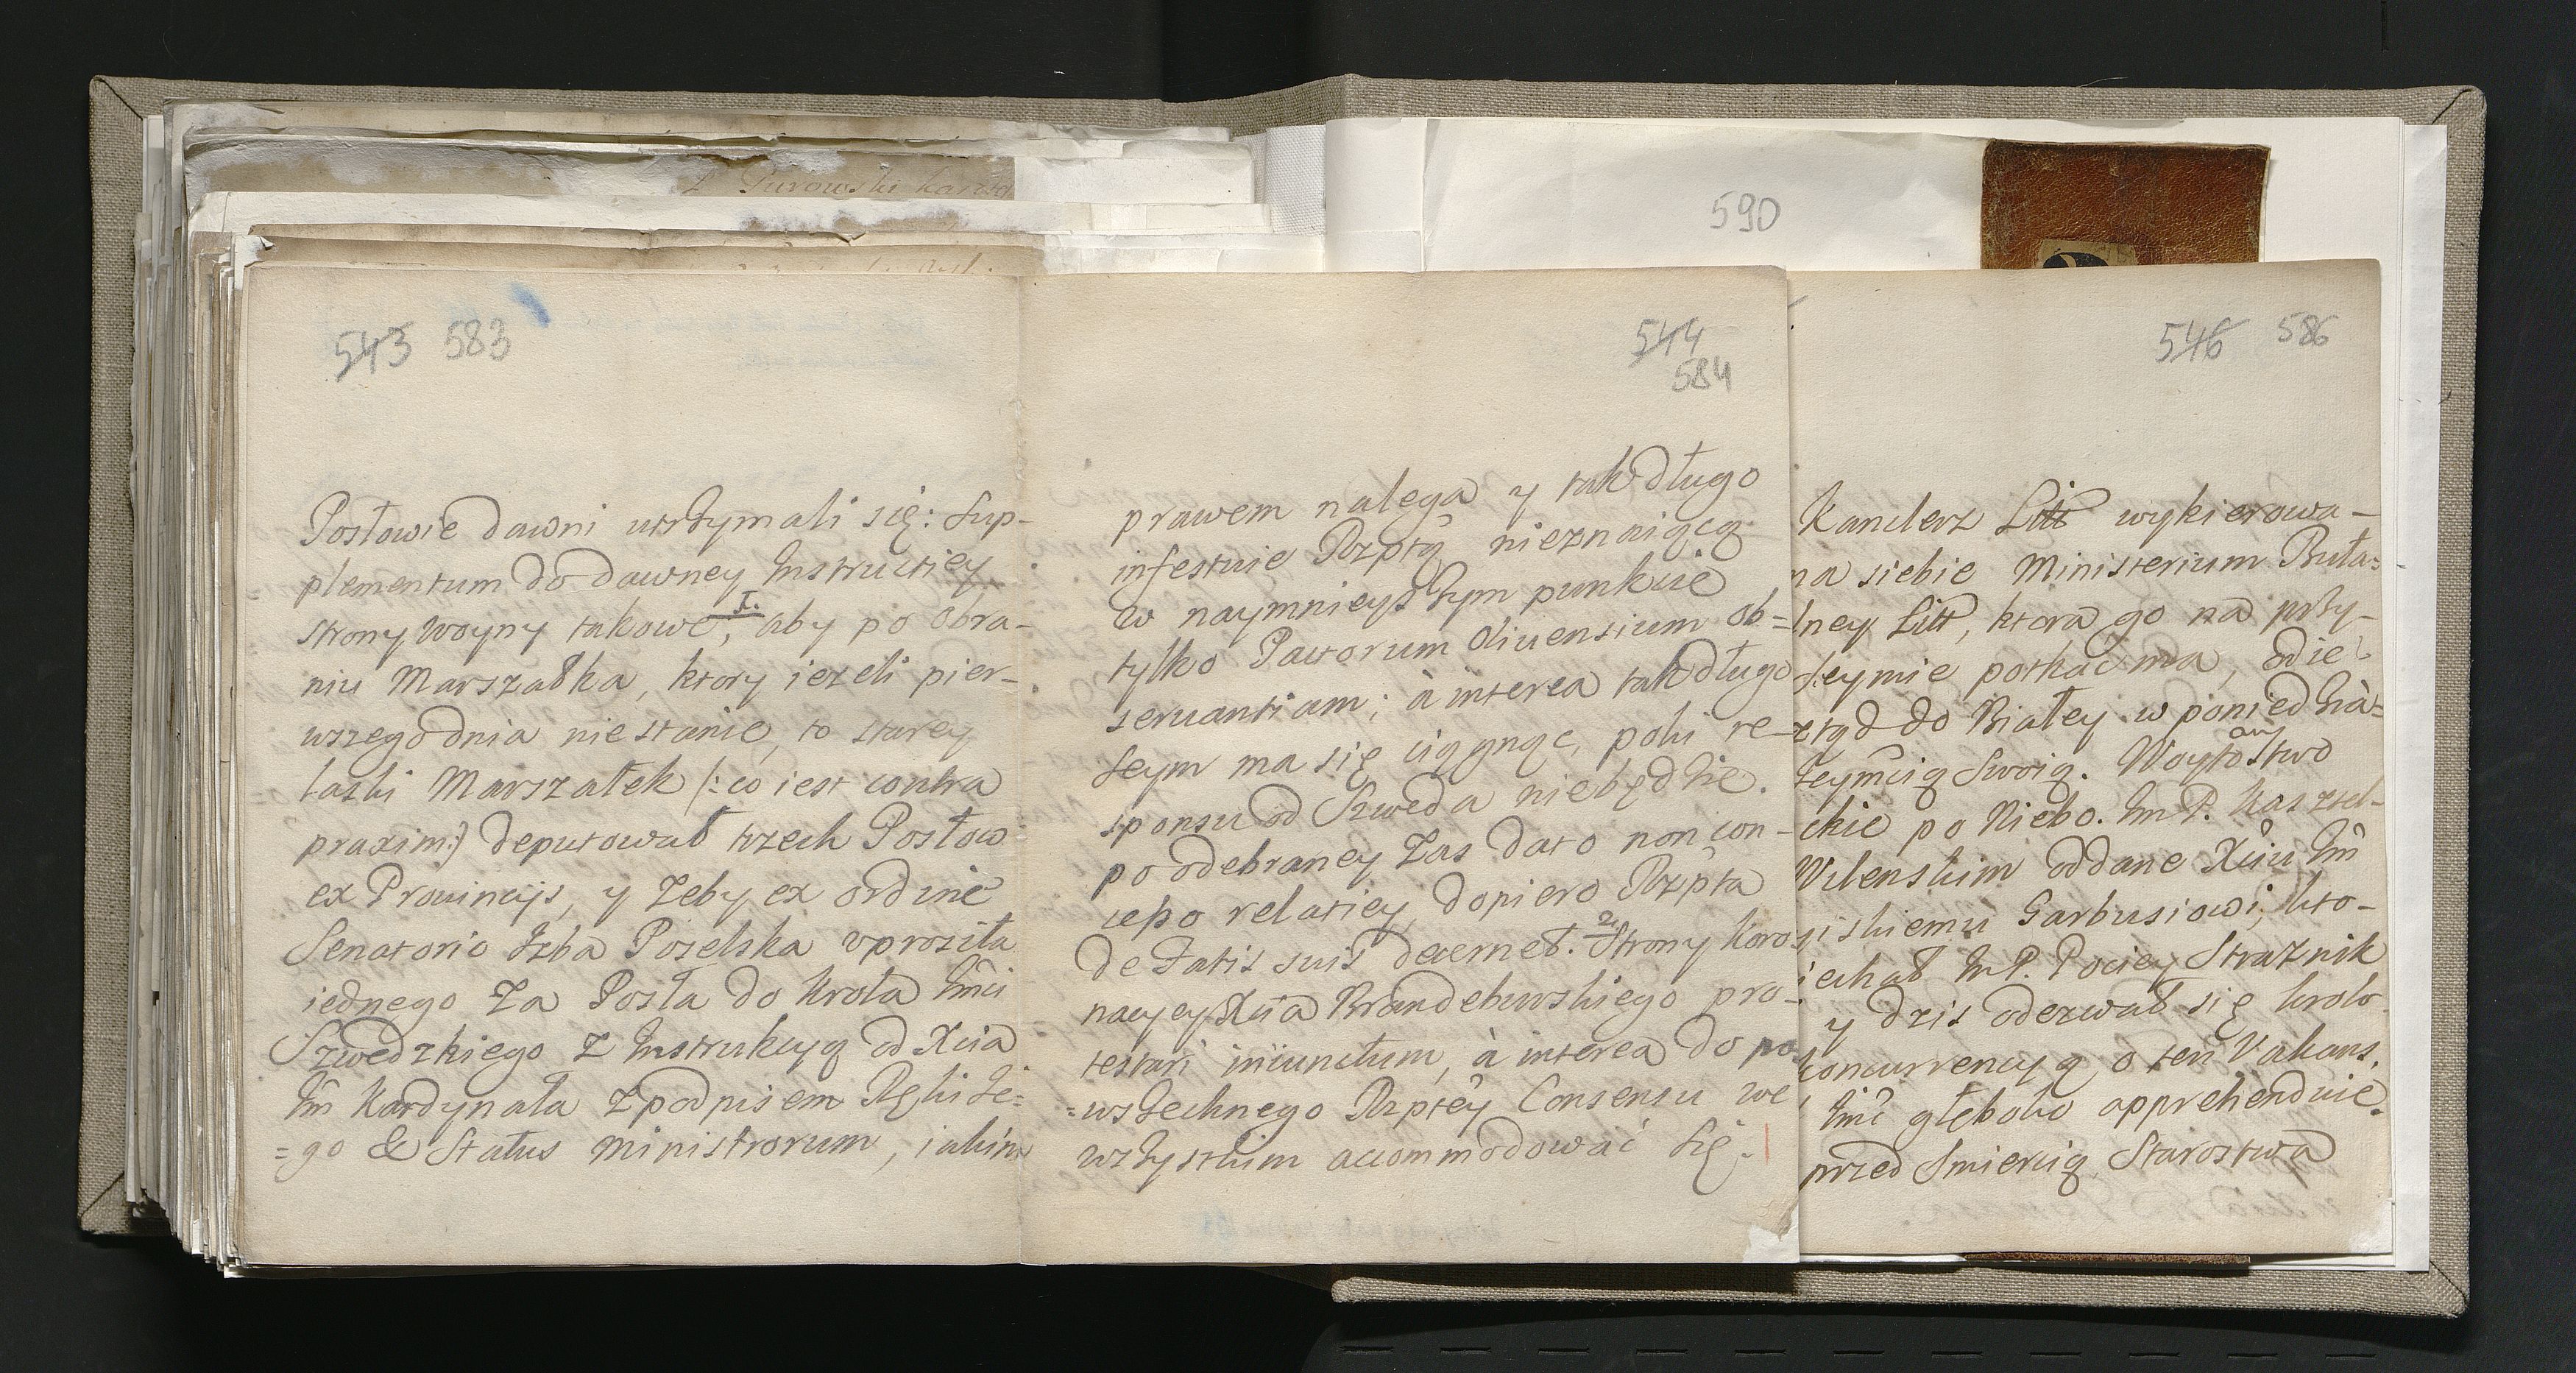 P Purowski
590
543 583
Posłowie dawni utrzymali się: Sup-
plementum do dawney Instructiey
strony woyny takowe, I. aby po obra-
niu Marszałka, ktory ieżeli pier-
wszego dnia nie stanie, to starey
laski Marszałek (: co iest contra
praxim:) deputował trzech Posłow
ex Provincijs, y żeby ex ordine
Senatorio Izba Poselska uprosiła
iednego za Posła do Krola Jmci
Szwedzkiego z Instrukcyą od Xcia
Jm Kardynała z podpisem Ręki Je=
=go & Status Ministrorum, iakim
544
584
prawem nalega y tak długo
infestuie Rzptą nieznaiącą
w naymnieyszym punkcie
tylko Pactorum Oliuensium ob=
seruantiam; à interea tak długo
seym ma się ciągnąc, poki re-
sponsu od Szweda niebędzie.
po odebraney zas dato non con-
cepo relatiey, dopiero Rzpta
de Fatis suis decernet. 2 Strony Koro
nacyey Xcia Brandeburskiego pro=
testari iniunctum, à interea do po
=wszechnego Rzptey Consensu we
wszystkim accommodować się.
546 586
Kanclerz Litt wykierowa-
na siebie Ministerium Buła=
lney Litt, ktora go na przy-
seymie potkac ma, odie
ztąd do Białey w poniedzia=
Jeymcią Swoią. Woytowstwo
ckie po Niebo. Jm P. Kasztel-
Wilenskim oddane Xciu Jm
iskiemu Garbusiowi, kto-
iechał Jm P. Pociey Strażnik
y dzis odezwał się krolo
concurrencyą o ten Vakans.
Jmc głeboko apprehenduie.
przed Smiercią Starostwa